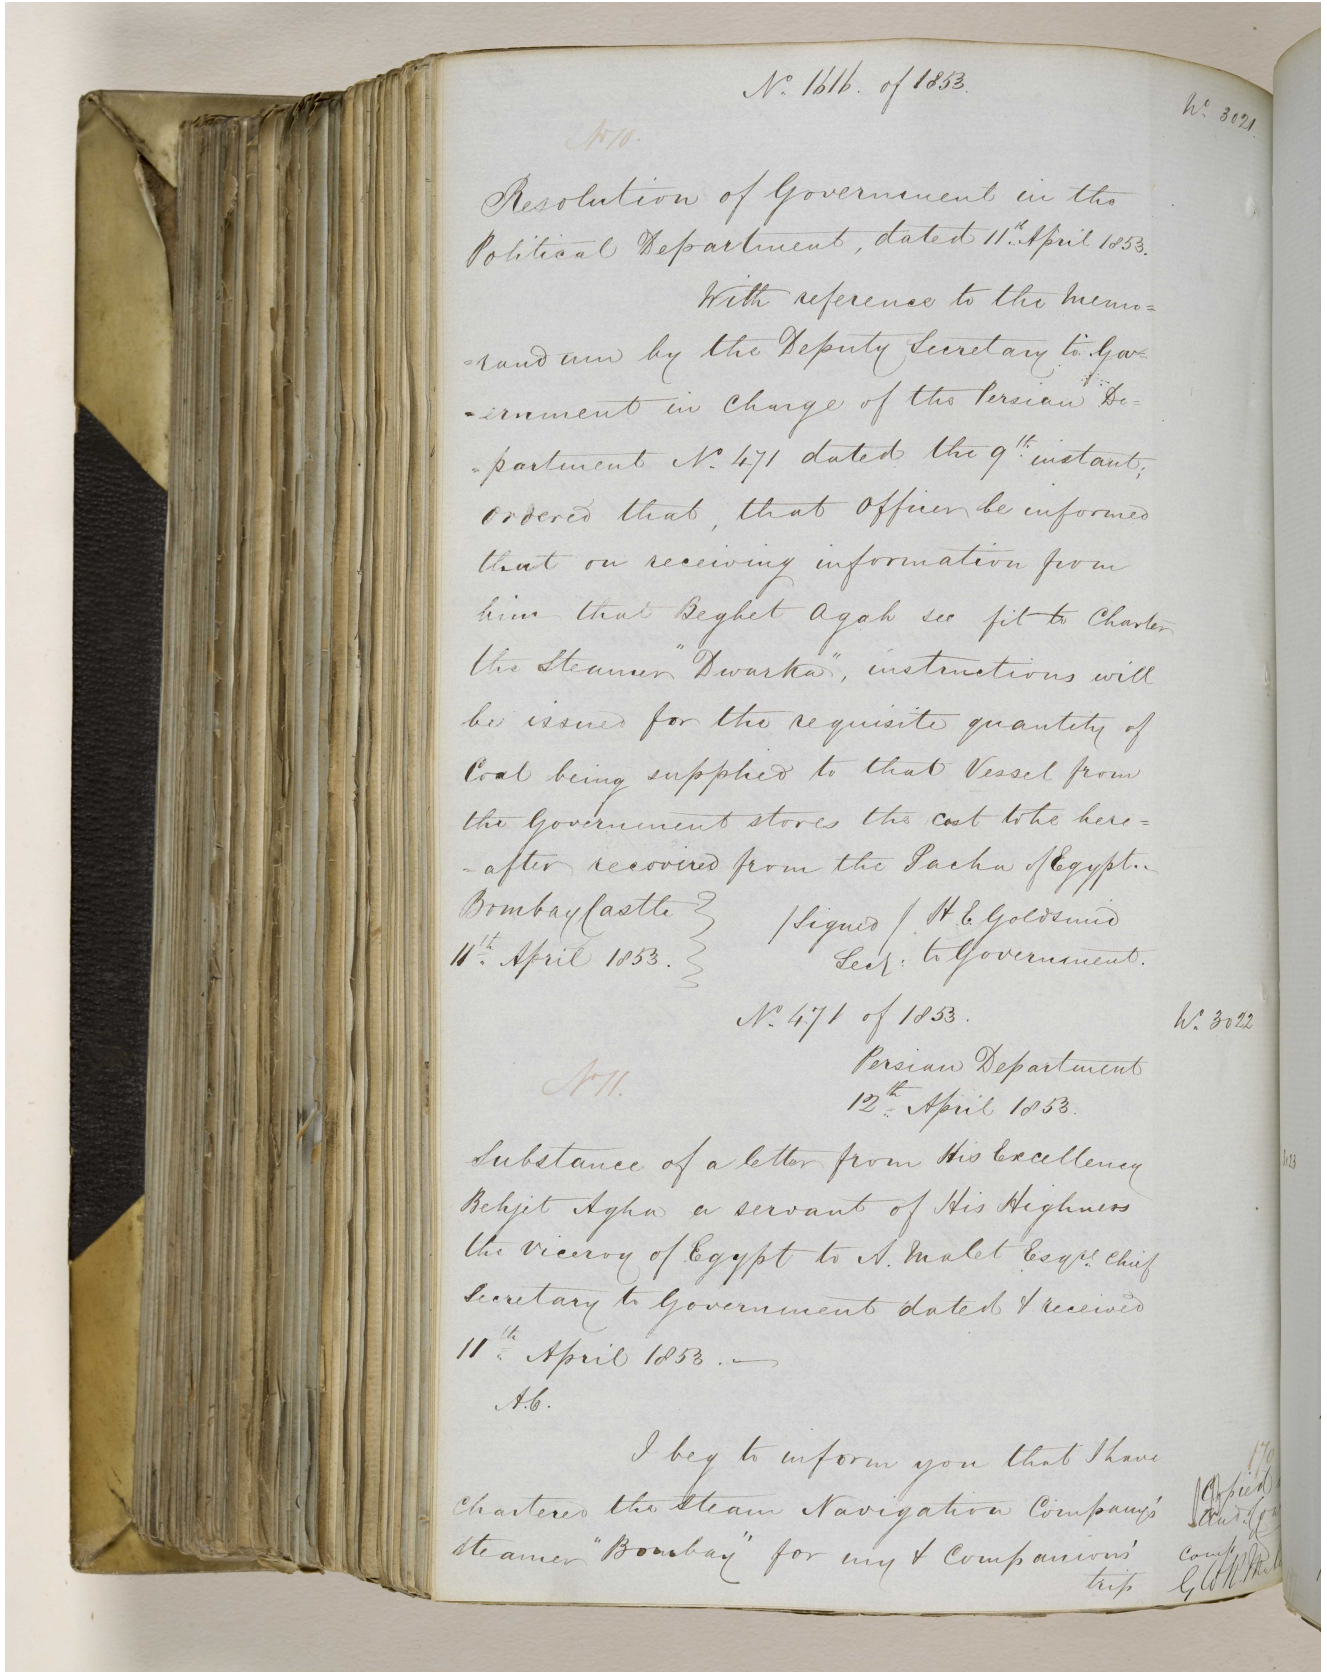 No. 1616. of 1853.
No. 3021.
No 10.
Resolution of Government in the
Political Department, dated 11th April 1853.
With reference to the Memo=
=randum by the Deputy Secretary to Gov=
=ernment in charge of the Persian De=
=partment No. 471 dated the 9th instant;
ordered that, that officer be informed
that on receiving information from
him that Beghet Agah see fit to Charter
the Steamer "Dwarka", instructions will
be issued for the requisite quantity of
Coal being supplied to that Vessel from
the Government stores the cost to be here=
=after recovered from the Pacha of Egypt.
Bombay Castle
11th April 1853.
/Signed/ H. E. Goldsmid
Secy: to Government.
No. 471 of 1853.
No. 3022
Persian Department
No 11.
12th April 1853.
Substance of a letter from His Excellency
Behjet Agha a servant of His Highness
the Viceroy of Egypt to A. Malet Esqre. Chief
Secretary to Government dated & received
11th April 1853.
A.C.
I beg to inform you that I have
Chartered the Steam Navigation Company's
Steamer "Bombay" for my & Companions'
trip
Copied
and